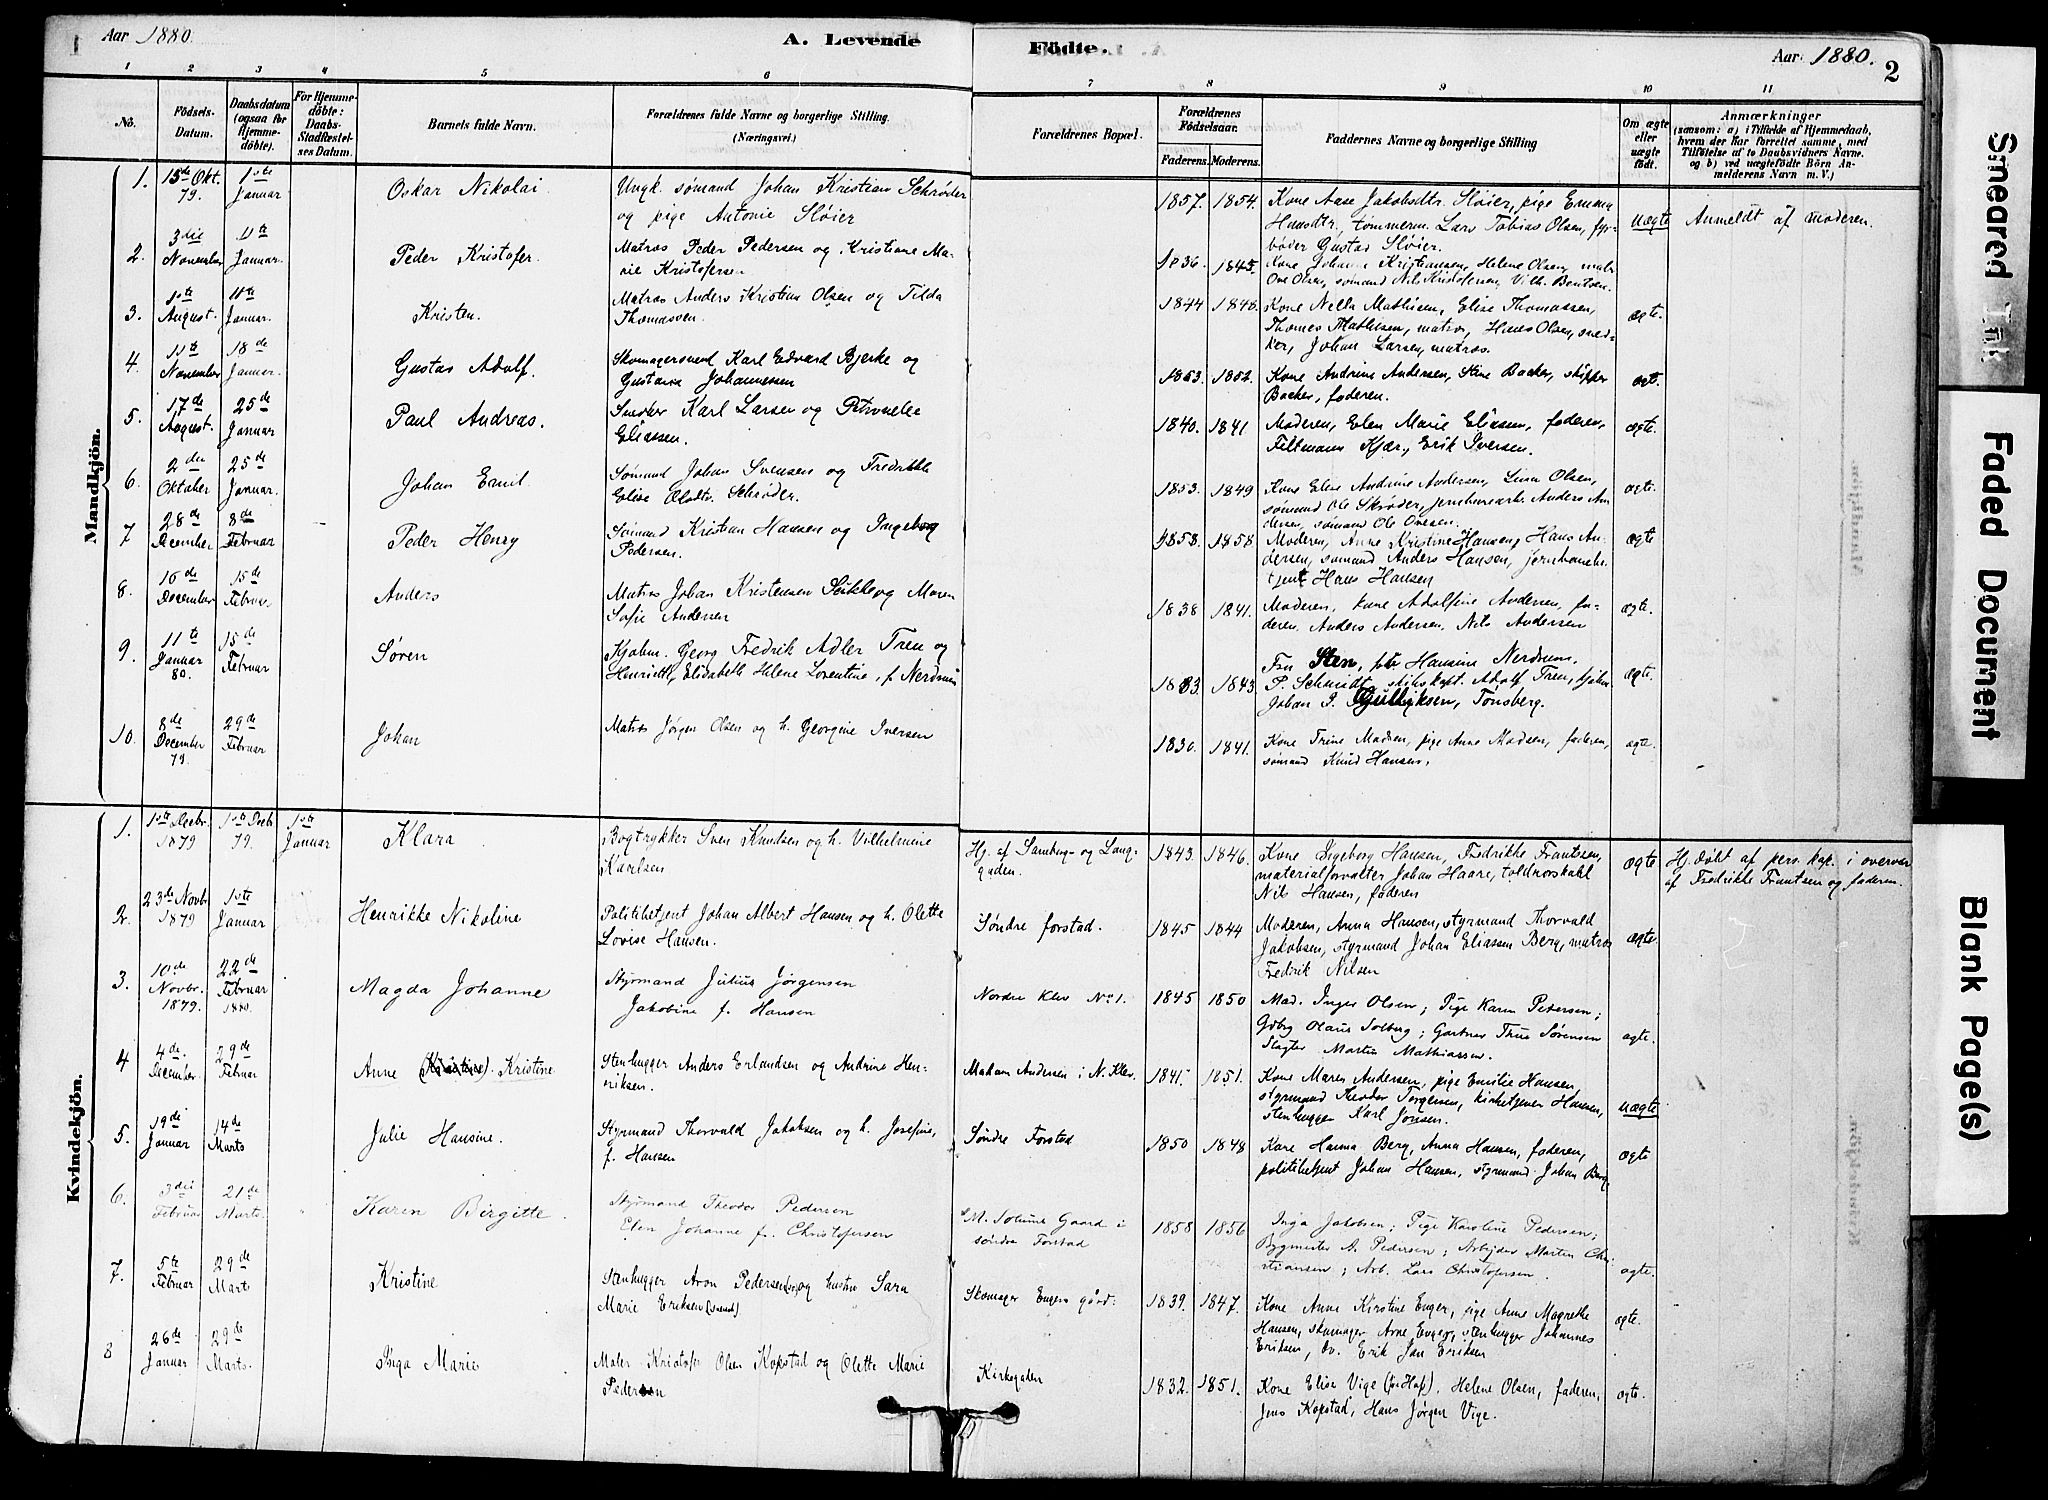 Aar 1880.
A. Levende
Fødte.
Aar 1880.
2
1 2 3 4 5 6 7 8 9 10 11
No.
Fødsels-
Datum.
Daabsdatum
(ogsaa for
Hjemme-
døbte).
For Hjemme-
døbte:
Daabs-
Stadfæstel-
ses Datum.
Barnets fulde Navn.
Forældrenes fulde Navne og borgerlige Stilling.
(Næringsvei.)
Forældrenes Bopæl.
Forældrenes
Fødselsaar.
Faderens. Moderens.
Faddernes Navne og borgerlige Stilling
Om ægte
eller
uægte
født.
Anmærkninger
(saasom: a) i Tilfælde af Hjemmedaab,
hvem der har forrettet samme, med
Tilføielse af to Daabsvidners Navne.
og b) ved uægtefødte Børn An-
melderens Navn m. V.)
Mandkjön.
1. 15de Okt. 79. 1ste Januar
Oskar Nikolai
Ungk. sømand Johan Kristian Schrøder
og pige Antonie Sløier
1857. 1854.
Kone Aase Jakobsdtr. Sløier, pige Emma
Hansdtr, tømmerm. Lars Tobias Olsen, fyr-
bøder Gustav Sløier.
uægte
Anmeldt af moderen.
2. 3die November 11te Januar.
Peder Kristofer
Matros Peder Pedersen og Kristiane Ma-
rie Kristofersen
1836. 1845.
Kone Johanne Kristiansen, Helene Olsen, matr.
Ove Olsen, sømand Nils Kristofersen, Vilh. Bentsen.
3. 1ste August. 11te Januar.
Kristen.
Matros Anders Kristian Olsen og Tilda
Thomassen.
1844 1846.
Kone Nella Mathisen, Elise Thomassen,
Thomas Mathisen, matros, Hans Olsen, sned-
ker, Johan Larsen, matros.
ægte.
4. 11te November 18de Januar.
Gustav Adolf.
Skomagersvend Karl Edvard Bjerke og
Gustava Johannesen
1853. 1852.
Kone Andrine Andersen, Stine Backer, skipper
Backer, faderen.
ægte.
5. 17de August. 25de Januar
Paul Andreas.
Snedker Karl Larsen og Petronelle
Eliassen.
1840. 1841
Moderen, Elen Marie Eliassen, faderen,
Feltmann Kjær, Erik Iversen.
ægte.
6. 2den Oktober 25de Januar.
Johan Emil.
Sømand Johan Svensen og Fredrikke
Elise Olsdtr. Schrøder.
1853. 1849
Kone Elene Andrine Andersen, Lina Olsen,
sømand Ole Skrøder, jernbanearb. Anders An-
dersen, sømand Ole Ovesen.
ægte.
7 28de December 8de Februar
Peder Henry
Sømand Kristian Hansen og Ingeborg
Pedersen.
1858. 1858
Moderen, Anne Kristine Hansen, Hans An-
dersen, sømand Anders Hansen, jernbanebe-
tjent Hans Hansen
ægte
8. 16de December 15de Februar.
Anders
Matros Johan Kristensen Sukke og Maren
Sofie Andersen
1838 1841.
Moderen, kone Adolfine Andersen, fa-
deren, Anders Andersen, Nils Andersen
ægte.
9. 11te Januar 80. 15de Februar
Søren
Kjøbm. Georg Fredrik Adler Tren og
Henriette Elisabeth Helene Lorentine, f. Nerdrum
1843.
Fru Sten, frk Hansine Nerdrum.
P. Schmidt, skibskapt. Adolf Tren, kjøbm.
Johan P. Gulliksen, Tønsberg.
ægte.
10. 8de December 79. 29de Februar
Johan
Matros Jørgen Olsen og h. Georgine Iversen
1830. 1841.
Kone Trine Madsen, pige Anne Madsen, faderen,
sømand Knud Hansen.
ægte.
Kvindekjön.
1. 1ste Decbr. 1879 1ste Decb. 79. 1ste Januar
Klara
Bogtrykker Sven Knudsen og h. Vilhelmine
Karlsen
Hj. af Samberg- og Lang-
gaden.
1843. 1846.
Kone Ingeborg Hansen, Fredrikke Frantsen,
materialforvalter Johan Haare, toldrorskarl
Nils Hansen, faderen
ægte
Hj. døbt af pers. kap. i overvær
af Fredrikke Frantsen og faderen.
2. 23de Novbr. 1879 1ste Januar
Henrikke Nikoline
Politibetjent Johan Albert Hansen og h. Olette
Lovise Hansen.
Søndre forstad.
1845 1844
Moderen, Anna Hansen, styrmand Thorvald
Jakobsen, styrmand Johan Eliassen Berg, matros
Fredrik Nilsen
ægte.
3. 10de Novbr. 1879. 22de Februar 1880.
Magda Johanne
Styrmand Julius Jørgensen
Jakobine f. Hansen
Nordre Klev No 1.
1845 1850
Mad. Inger Olsen; Pige Karen Petersen;
Gdbg Olaus Solberg; Gartner Thus Sørensen
Slagter Martin Mathiassen.
ægte.
4 4de December. 29de Februar
Anne (Kristine). Kristine
Stenhugger Anders Erlandsen og Andrine Hen-
riksen.
Madam Andersen i N. Klev.
1841. 1851.
Kone Maren Andersen, pige Emilie Hansen,
styrmand Theodor Torgersen, kirketjener Hansen,
stenhugger Karl Jonsen.
uægte
5. 19de Januar 14de Marts
Julie Hansine.
Styrmand Thorvald Jakobsen og h. Josefine,
f. Hansen
Søndre Forstad
1850 1848
Kare Hanna Berg, Anna Hansen, faderen,
politibetjent Johan Hansen, styrmand Johan Berg
ægte
6 3die Februar 21de Marts.
Karen Birgitte.
Styrmand Theodor Pedersen
Elen Johanne f. Christofersen
M. Solums Gaard i
søndre Forstad
1858 1856
Inga Jakobsen; Pige Karoline Pedersen;
Bygmester A. Pedersen; Arbejder Martin Chri-
stiansen; Arb. Lars Christofersen.
ægte.
7. 5te Februar 29de Marts
Kristine
Stenhugger Aron Pedersen og hustru Sara
Marie Eriksen
Skomager Engers gård.
1839. 1847.
Kone Anne Kirstine Enger, pige Anne Magrethe
Hansen, skomager Arne Enger, stenhugger Johannes
Eriksen, do. Erik Jan Eriksen
ægte.
8 26de Januar 29de Marts.
Inga Marie
Maler Kristofer Olsen Kopstad og Olette Marie
Pedersen
Kirkegaden
1832. 1851.
Kone Elise Vige, Helene Olsen, faderen,
Jens Kopstad, Hans Jørgen Vige.
ægte.
Smeared Ink
Faded Document
Blank Page(s)